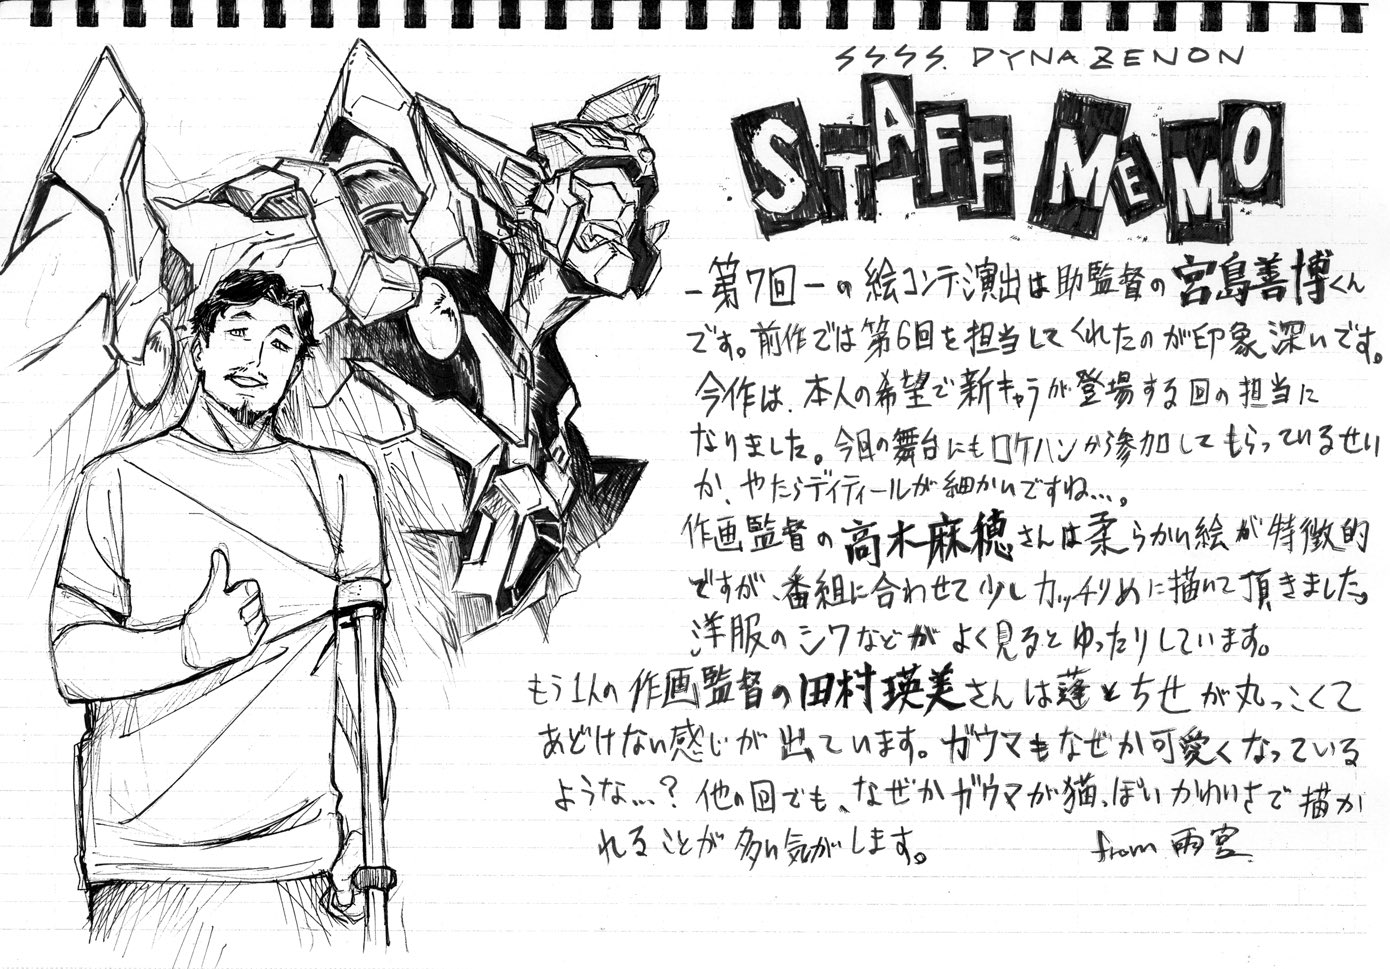 SSSS. DYNAZENON
STAFF MEMO
－第7回－の絵コンテ・演出は助監督の宮島善博くん
です。前作では第6回を担当してくれたのが印象深いです。
今作は、本人の希望で新キャラが登場する回の担当に
なりました。今回の舞台にもロケハンから参加してもらっているせい
か、やたらディティールが細かいですね…。
作画監督の高木麻穂さんは柔らかい絵が特徴的
ですが、番組に合わせて少しカッチリめに描いて頂きました。
洋服のシワなどがよく見るとゆったりしています。
もう1人の作画監督の田村瑛美さんは蓬とちせが丸っこくて
あどけない感じが出ています。ガウマもなぜか可愛くなっている
ような…？他の回でも、なぜかガウマが猫っぽいかわいさで描か
れることが多い気がします。
from 雨宮